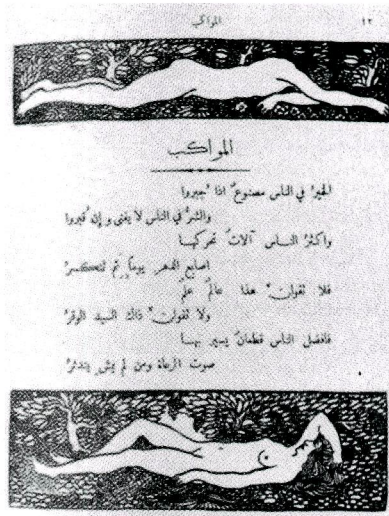 المواكب ١٢
المواكب
الخيرُ في الناس مصنوعٌ اذا جبروا
والشرُّ في الناس لا يفنى وإن قبروا
واكثرُ الناس آلاتٌ تحركها
اصابع الدهر يوماً ثم تنكسرُ
فلا تقولنّ هذا عالمٌ علمٌ
ولا تقولنّ ذاك السيد الوقرُ
فافضل الناس قطعانٌ يسير بها
صوت الرعاة ومن لم يمشِ يندثرُ